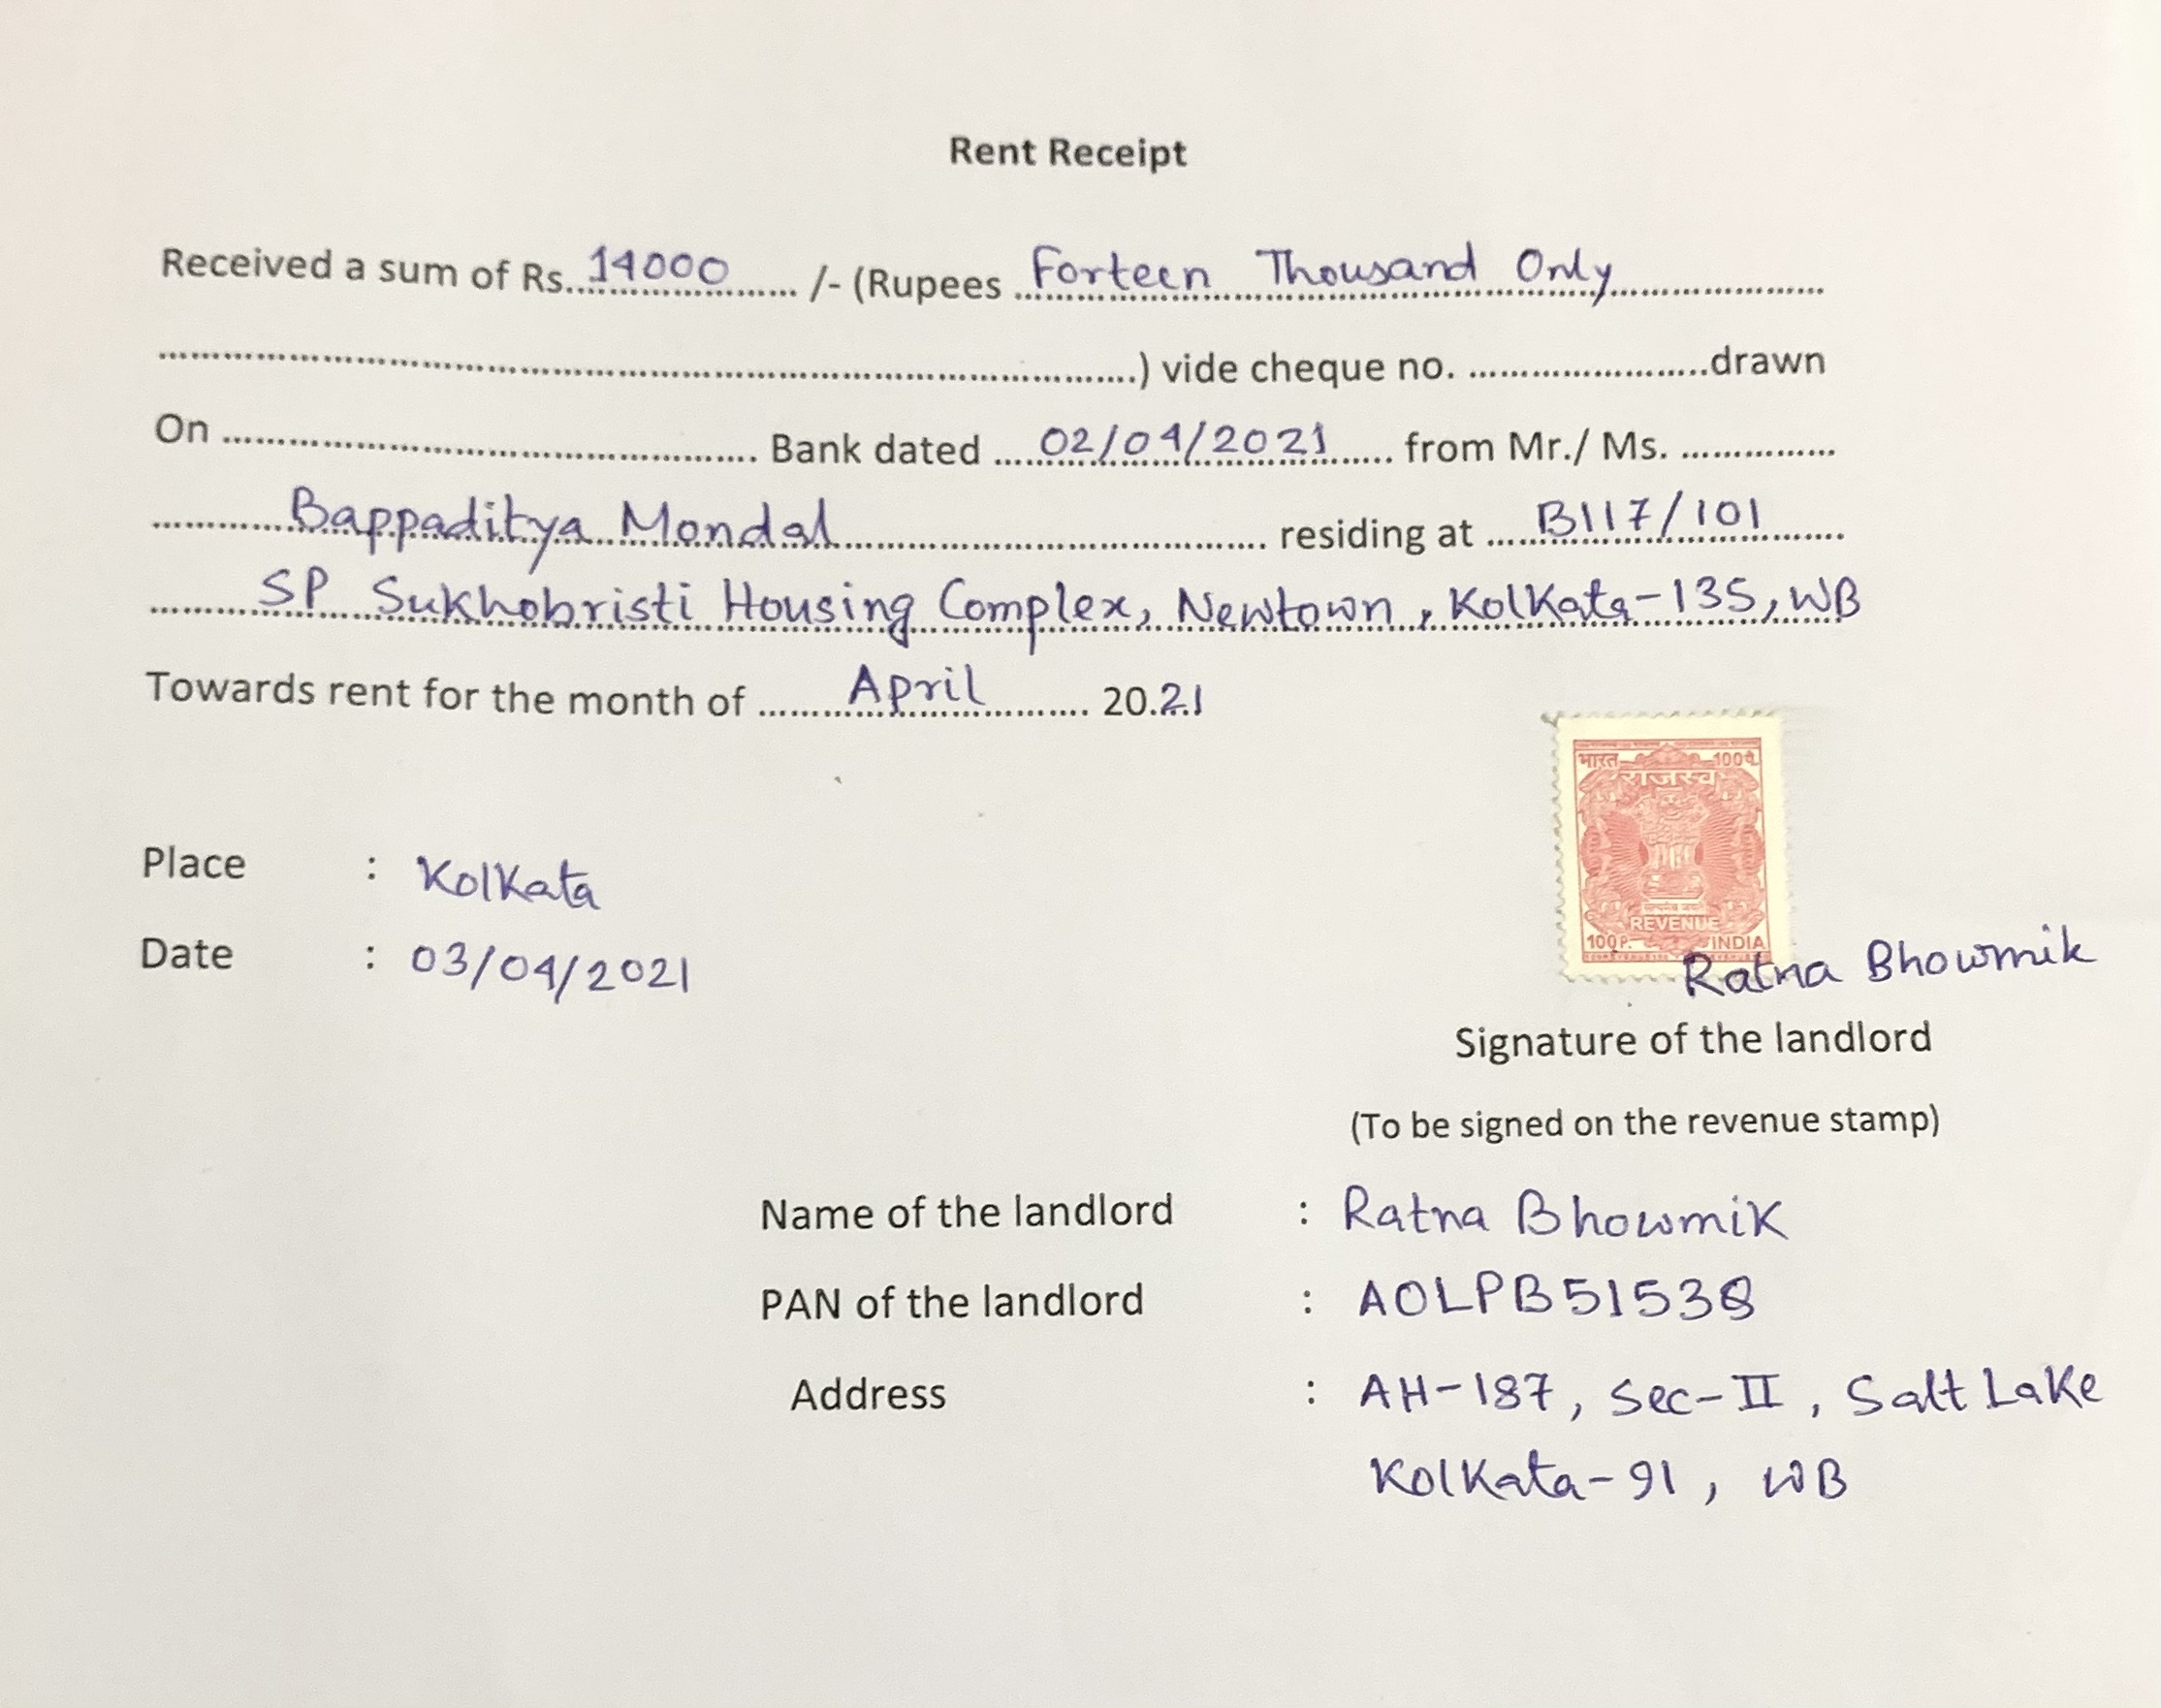 Rent Receipt
Received a sum of Rs. 14000 /- (Rupees Forteen Thousand Only
) vide cheque no. drawn
On Bank dated 02/04/2021 from Mr./ Ms.
Bappaditya Mondal residing at B117/101
SP Sukhobristi Housing Complex, Newtown, Kolkata-135, WB
Towards rent for the month of April 2021
भारत 100पै.
राजस्व
REVENUE
100P. INDIA
Place : Kolkata
Date : 03/04/2021
Ratna Bhowmik
Signature of the landlord
(To be signed on the revenue stamp)
Name of the landlord : Ratna Bhowmik
PAN of the landlord :
Address : AH-187, Sec-II, Salt Lake
Kolkata-91, WB